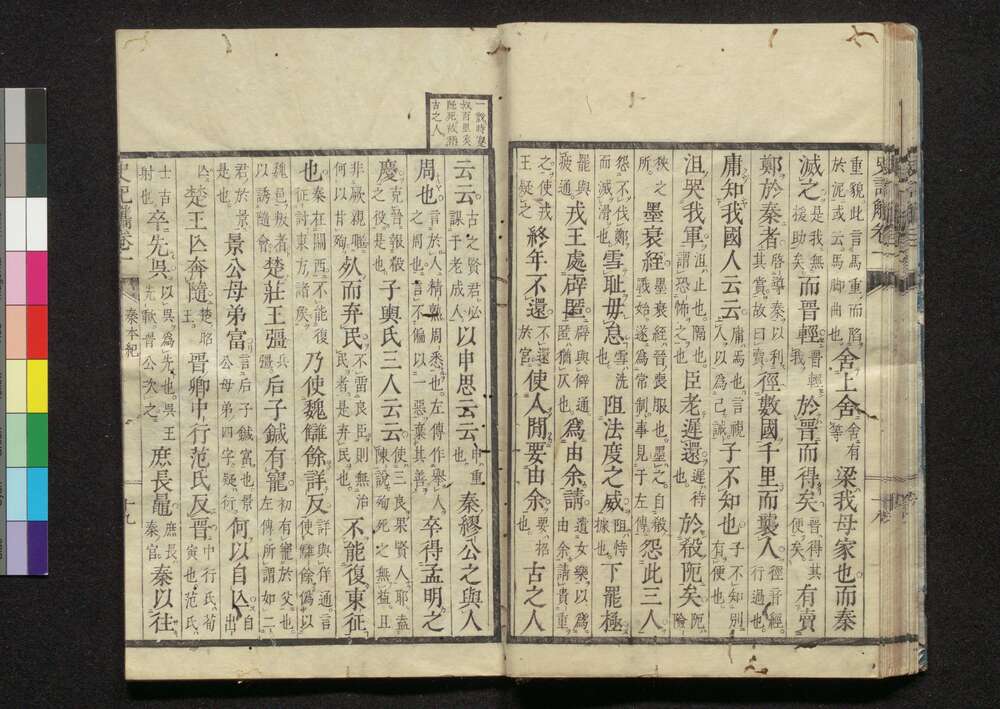 重貌此言馬重而陷於泥或云馬脚曲也舍上舍舍有等梁我母家也而秦
滅之是我無援助矣而晉輕晉輕我於晉而得矣晉得其便矣有賣
鄭於秦者啓導秦以利其賞故曰賣徑數國千里而襲人徑音經行過也
庸知我國人云云庸焉也言視人以爲己誠子不知也子不知別有便也
沮哭我軍沮止也隔也謂恐怖之也臣老遲還遲待也於殽阨矣阨險
狹之所墨衰絰墨衰絰晉喪服也墨之自殽戰始遂爲常制事見于左傳怨此三人
怨不伐鄭而滅滑也雪耻毋怠雪洗也阻法度之威阻恃據也下罷極
罷與疲通戎王處辟匿辟與僻通匿猶仄也爲由余請遺女樂以爲由余請貴重
之使戎王疑之終年不還不還於宮使人閒要由余要招也古之人
云云古之賢君必謀于老成人以申思云云申重也秦繆公之與人
周也言於人精無周悉也左傳作擧人之周也言不偏以一惡棄其善卒得孟明之
慶克晉報殽之役是也子輿氏三人云云使三良果賢人耶盍陳說殉死之無益且
非厥親暱何以甘殉奴而弃民不雷良臣則無治民者是弃民也不能復東征
也秦在關西不能復征討東方諸矦乃使魏讎餘詳反詳與佯通言使讎餘僞以
魏邑叛者以誘隨會楚莊王彊兵彊后子鍼有寵初有寵於父也左傳所謂如二
君於景是也景公母弟富言后子鍼富也景公母弟四字疑行何以自亾自出
亾楚王亾奔隨楚昭王晉卿中行范氏反晉中行氏荀寅也范氏
士吉射也卒先吳以吳爲先也吳王先歃晉公次之庶長鼂庶長秦官秦以往
一說時蹇叔百里奚既死故謂古之人
秦本紀
十九